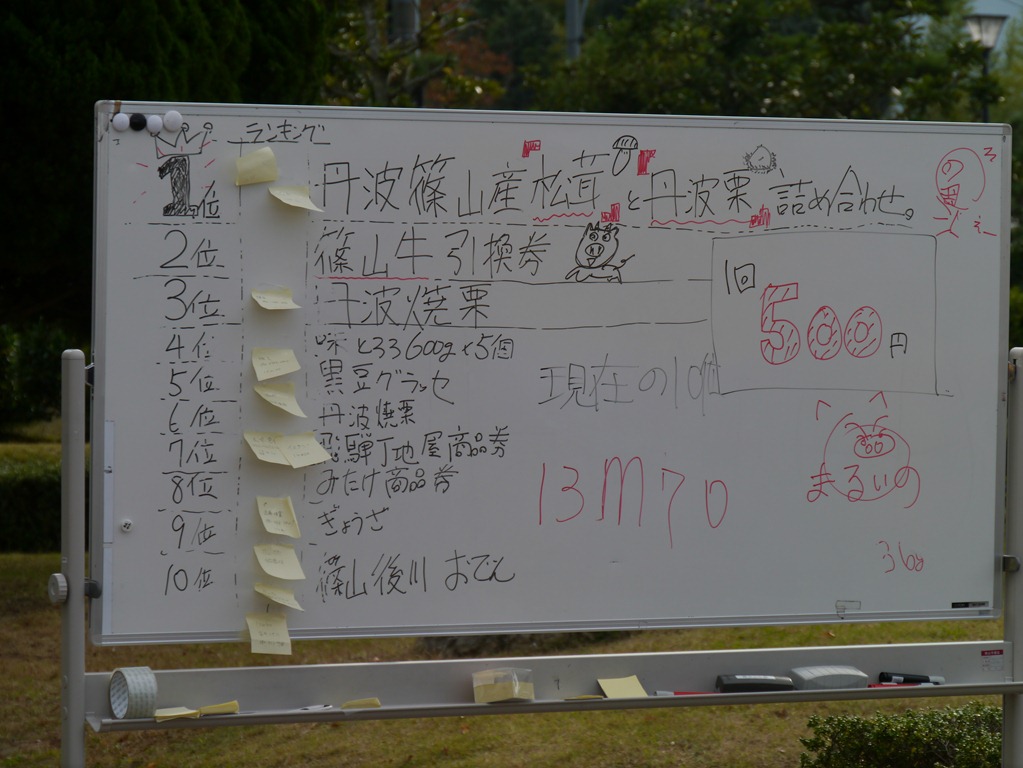 ランキング
1位 丹波篠山産松茸と丹波栗詰め合わせ。
2位 篠山牛引換券
3位 丹波焼栗
4位 600g×5個
5位 黒豆グラッセ
6位 丹波焼栗
7位 丁地屋商品券
8位 みたけ商品券
9位 ぎょうざ
10位 篠山後川 おでん
1回
500円
現在の10位
13m70
まるいの
368